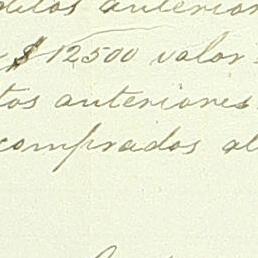 anterior
$12500 valor
tos anteriores
comprados al